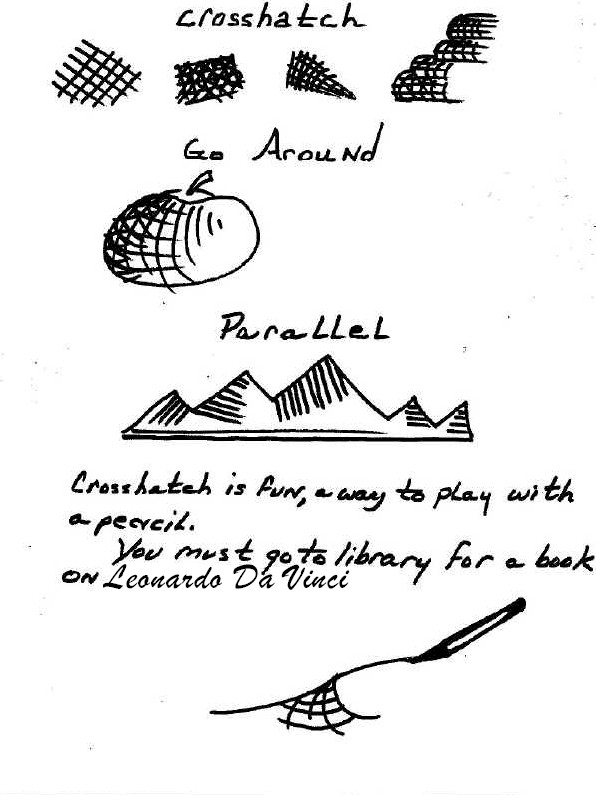 Crosshatch
Go Around
Parallel
Crosshatch is fun, a way to play with
a pencil.
You must go to library for a book
on Leonardo Da Vinci